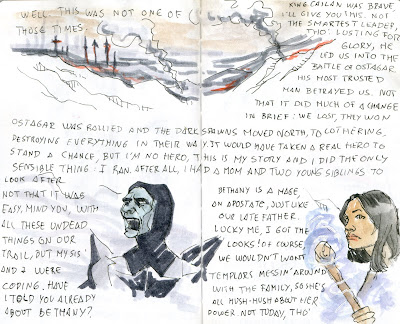 WELL... THIS WAS NOT ONE OF
THOSE TIMES.
KING CAILAN WAS BRAVE,
I'LL GIVE YOU THIS. NOT
THE SMARTEST LEADER,
THO'. LUSTING FOR
GLORY, HE
LED US INTO THE
BATTLE OF OSTAGAR.
HIS MOST TRUSTED
MAN BETRAYED US. NOT
THAT IT DID MUCH OF A CHANGE
IN BRIEF: WE LOST, THEY WON
OSTAGAR WAS RALLIED AND THE DARKSPAWNS MOVED NORTH, TO LOTHERING.
DESTROYING EVERYTHING IN THEIR WAY. IT WOULD HAVE TAKEN A REAL HERO TO
STAND A CHANCE, BUT I'M NO HERO, THIS IS MY STORY AND I DID THE ONLY
SENSIBLE THING: I RAN. AFTER ALL, I HAD A MOM AND TWO YOUNG SIBLINGS TO
LOOK AFTER
NOT THAT IT WAS
EASY, MIND YOU, WITH
ALL THESE UNDEAD
THINGS ON OUR
TRAIL, BUT MY SIS
AND I WERE
COPING. HAVE
I TOLD YOU ALREADY
ABOUT BETHANY?
BETHANY IS A MAGE,
AN APOSTATE, JUST LIKE
OUR LATE FATHER.
LUCKY ME, I GOT THE
LOOKS! OF COURSE,
WE WOULDN'T WANT
TEMPLARS MESSIN' AROUND
WITH THE FAMILY, SO SHE'S
ALL HUSH-HUSH ABOUT HER
POWER. NOT TODAY, THO'